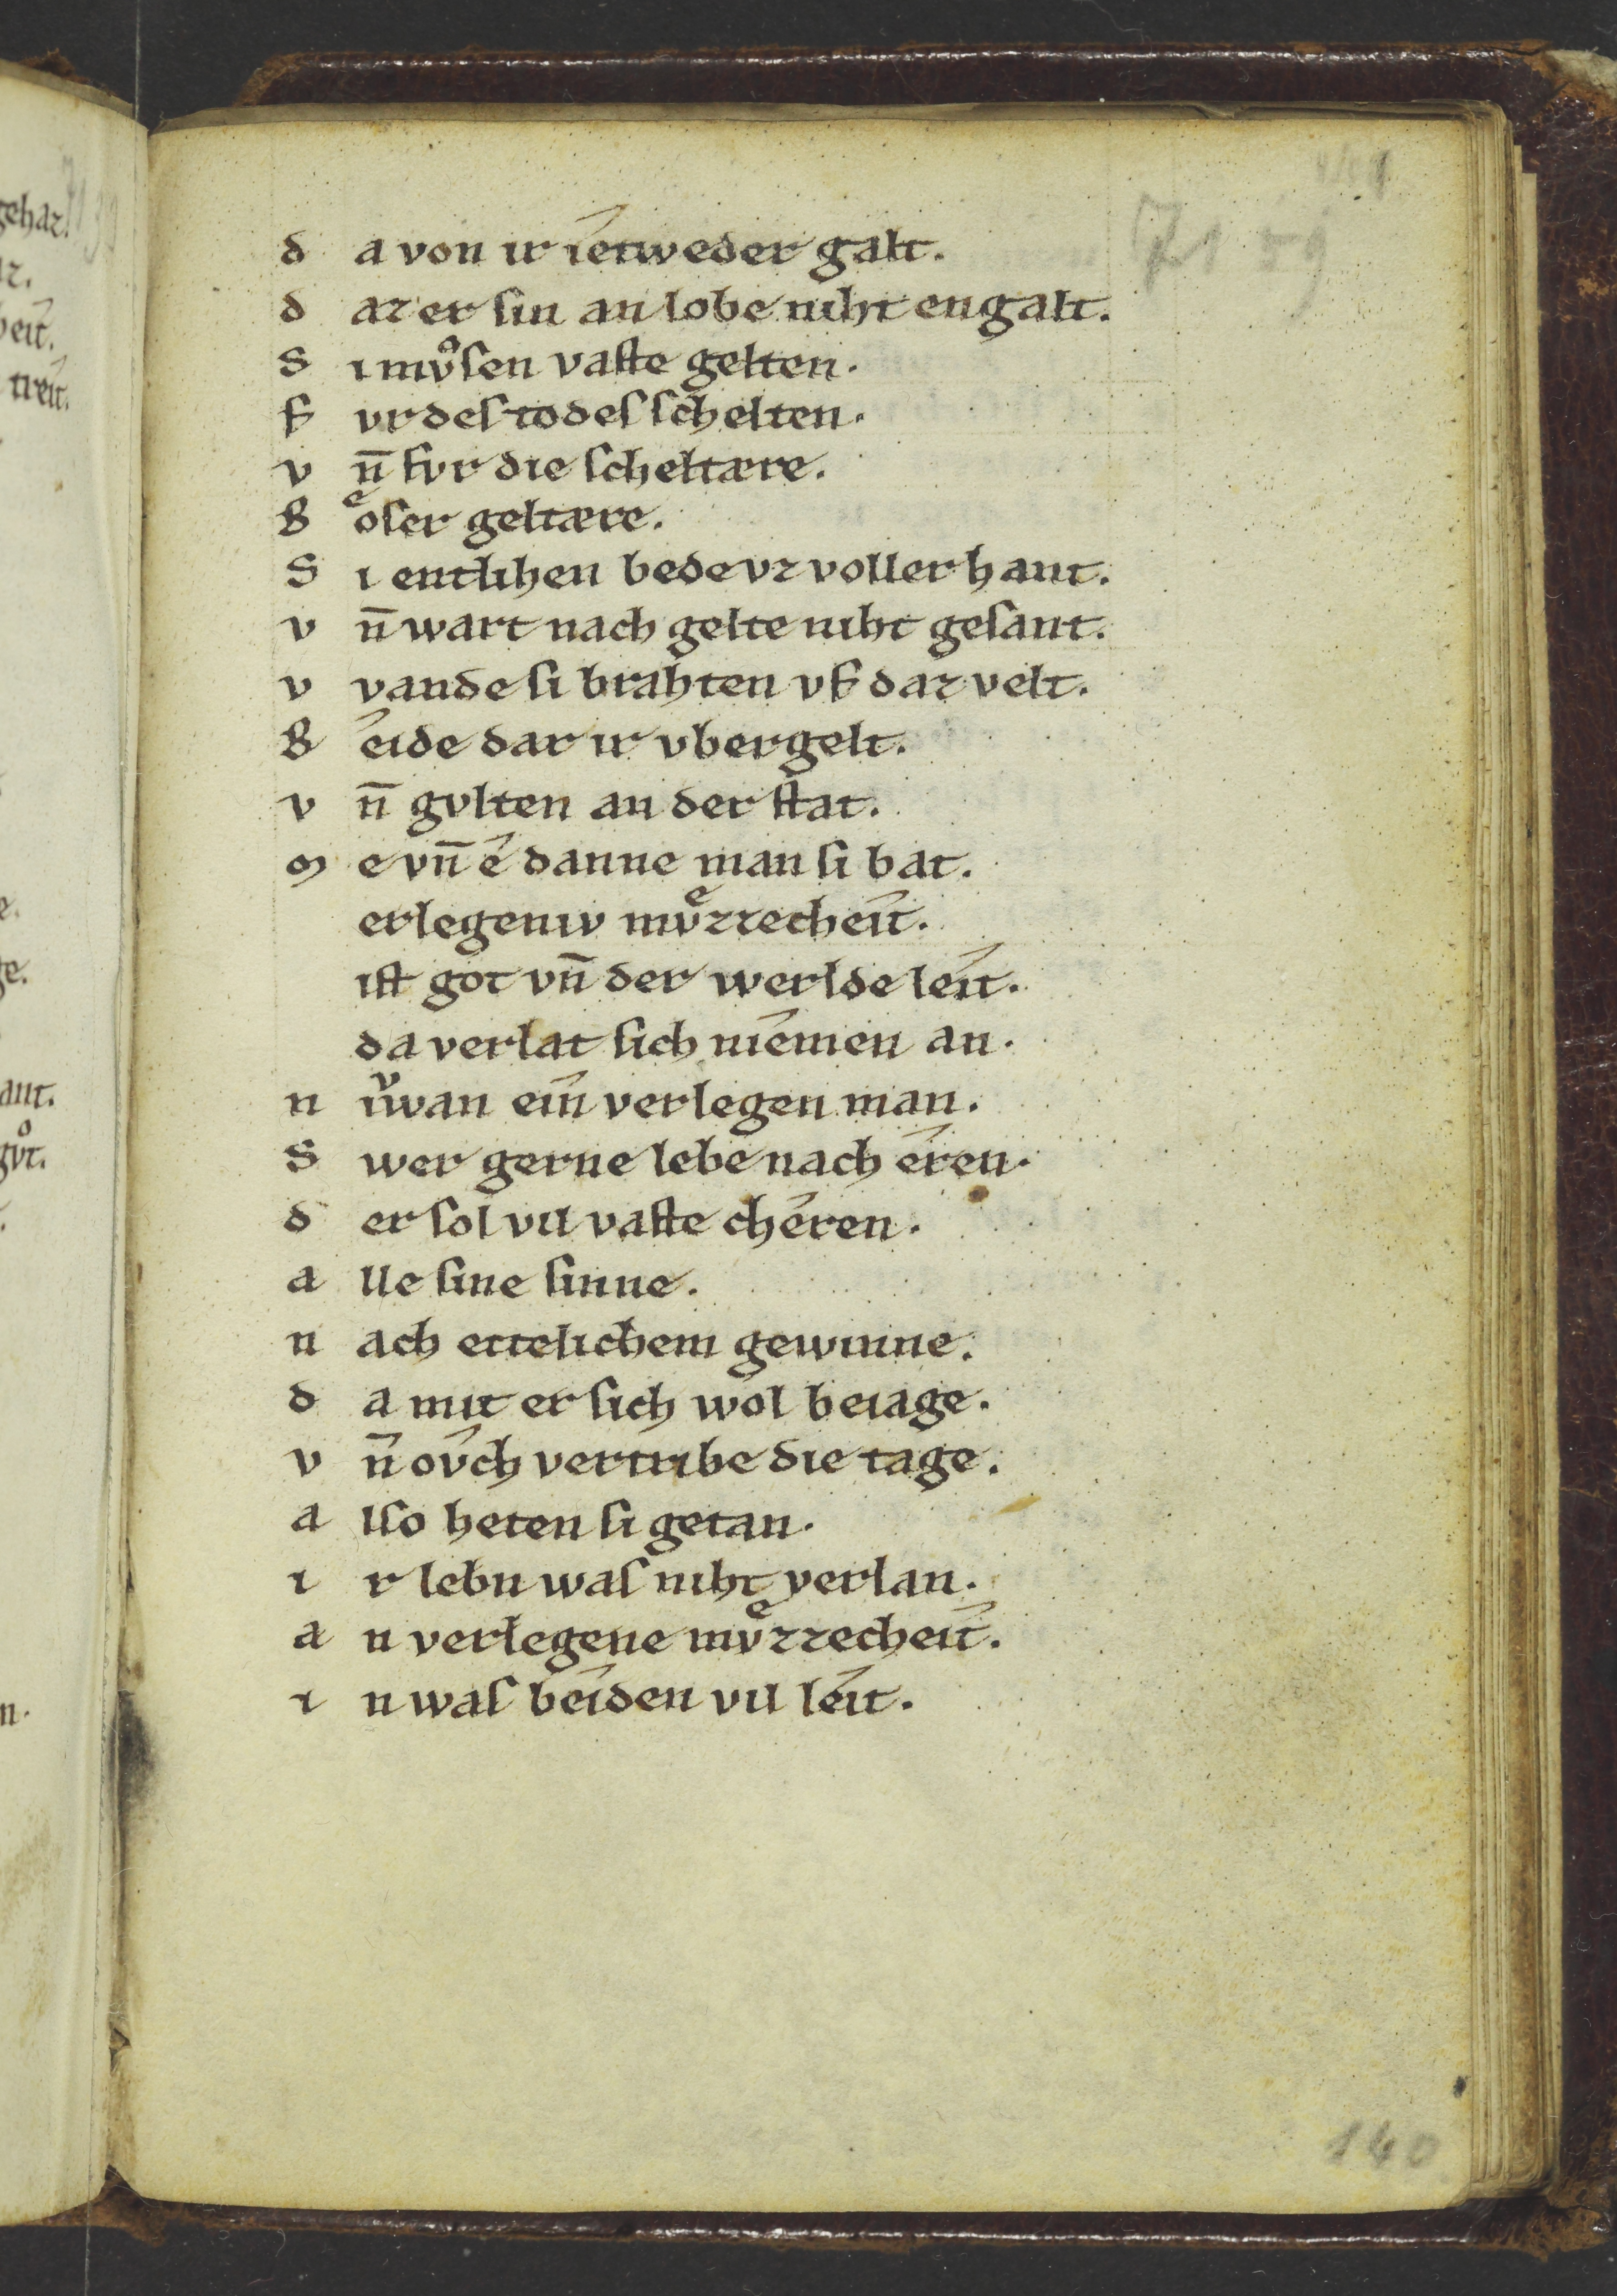 7159
d a von ir îetweder galt.
d az er ſin an lobe niht engalt.
S i mvͦſen vaſte gelten.
F vr deſ todeſ ſchelten.
v n̄ fvr die ſcheltære.
B oͤſer geltære.
S i entlihen bede vz voller hant.
v n̄ wart nach gelte niht geſant.
v vande ſi brahten vf daz velt.
B êide dar ir vbergelt.
v n̄ gvlten an der ſtat.
M e vn̄ ê danne man ſi bat.
erlegeniv mvͤzzecheît.
iſt got vn̄ der werlde leît.
da verlat ſich nîemen an.
n iͮwan eîn verlegen man.
S wer gerne lebe nach êren.
d er ſol vil vaſte chêren.
a lle ſine ſinne.
n ach ettelichem gewinne.
d a mit er ſich wol beiage.
v n̄ ov̂ch vertribe die tage.
a lſo heten ſi getan.
i r lebn waſ niht verlan.
a n verlegene mvͤzzecheît.
i n waſ beîden vil leît.
140